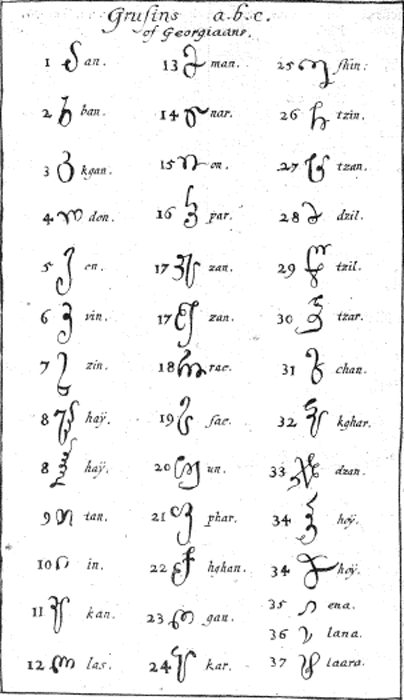 Grusins a.b.c.
of Georgiaans.
1 ა an.
2 ბ ban.
3 გ kgan.
4 დ don.
5 ე en.
6 ვ vin.
7 ზ zin.
8 haÿ.
8 haÿ.
9 თ tan.
10 ი in.
11 კ kan.
12 ლ las.
13 მ man.
14 ნ nar.
15 ო on.
16 პ par.
17 zan.
17 zan.
18 რ rae.
19 ს sae.
20 უ un.
21 ფ phar.
22 ქ hghan.
23 ღ gan.
24 ყ kar.
25 შ shin:
26 ჩ tzin.
27 ც tzan.
28 ძ dzil.
29 წ tzil.
30 ჭ tzar.
31 ხ chan.
32 kghar.
33 ჯ dzan.
34 ჰ hoÿ.
34 hoÿ.
35 ena.
36 lana.
37 laara.